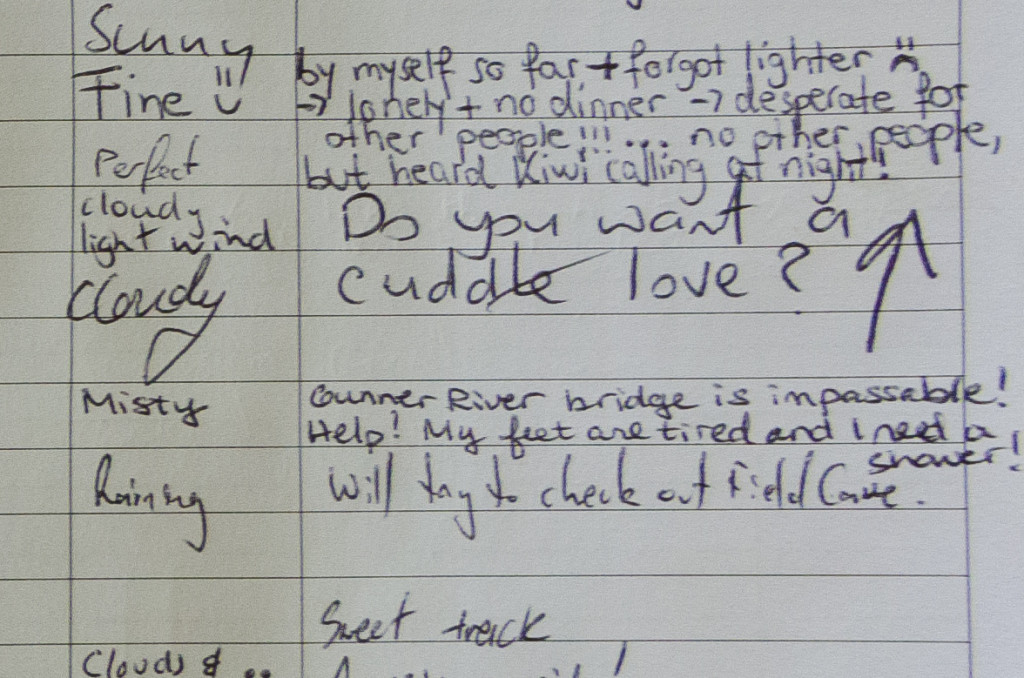 Sunny
Fine by myself so far + forgot lighter
→ lonely + no dinner → desperate for
other people!!!... no other people,
Perfect but heard Kiwi calling at night!
cloudy Do you want a
light wind
Cloudy cuddle love?
Misty Gunner River bridge is impassable!
Help! My feet are tired and I need a
shower!
Raining Will tay to check out Field Cave.
Sweet track
Clouds &